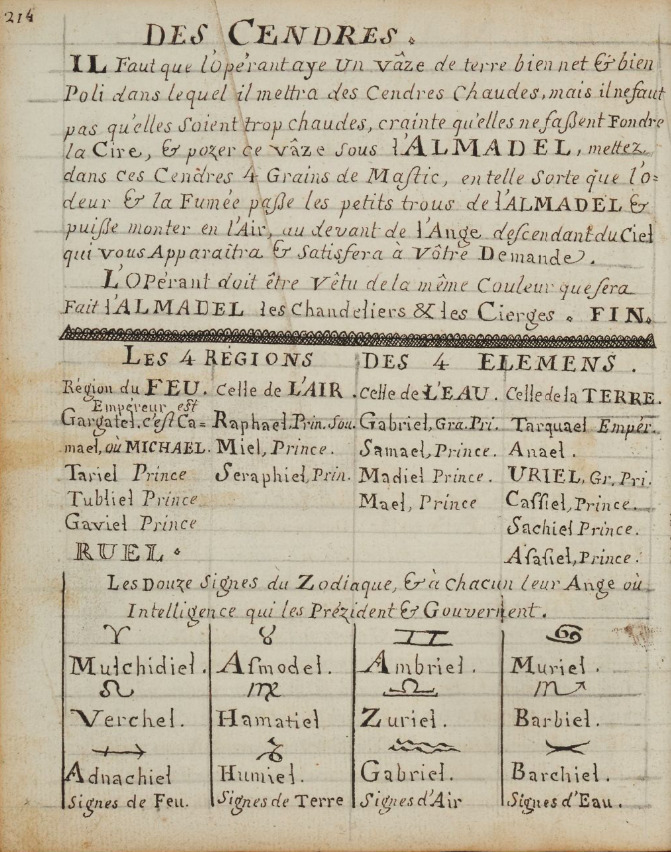 214
DES CENDRES.
IL Faut que l'opérant aye un vâze de terre bien net & bien
Poli dans lequel il mettra des Cendres Chaudes, mais il ne faut
pas qu'elles Soient trop chaudes, crainte qu'elles ne faßent Fondre
la Cire, & pozer ce vâze sous l'ALMADEL, mettez
dans ces Cendres 4 Grains de Mastic, en telle Sorte que l'o=
deur & la Fumée paße les petits trous de l'ALMADEL &
puiße monter en l'Air, au devant de l'Ange descendant du Ciel
qui vous Apparaitra & Satisfera à Vôtre Demande.
L'OPérant doit être Vêtu de la même Couleur que sera
Fait l'ALMADEL les Chandeliers & les Cierges. FIN.
LES 4 RÉGIONS DES 4 ELEMENS.
Région du FEU. Celle de L'AIR. Celle de L'EAU. Celle de la TERRE.
Empéreur est
Gargatel. c'est Ca= Raphael. Prin. Sou. Gabriel, Gra. Pri. Tarquael Empér.
mael, où MICHAEL. Miel, Prince. Samael, Prince. Anael.
Tariel Prince Seraphiel, Prin. Madiel Prince. URIEL, Gr. Pri.
Tubliel Prince Mael, Prince Cassiel, Prince.
Gaviel Prince Sachiel Prince.
RUEL. Asasiel, Prince.
Les Douze Signes du Zodiaque, & à Chacun leur Ange où
Intelligence qui les Prézident & Gouvernent.
♈ ♉ ♊ ♋
Mulchidiel. Asmodel. Ambriel. Muriel.
♌ ♍ ♎ ♏
Verchel. Hamatiel Zuriel. Barbiel.
♐ ♑ ♒ ♓
Adnachiel Humiel. Gabriel. Barchiel.
Signes de Feu. Signes de Terre Signes d'Air Signes d'Eau.